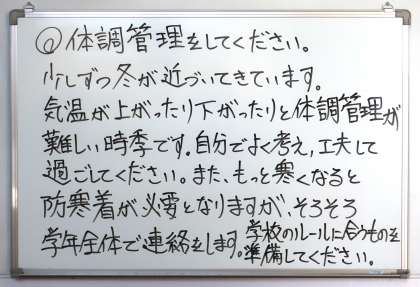 @体調管理をしてください。
少しずつ冬が近づいてきています。
気温が上がったり下がったりと体調管理が
難しい時季です。自分でよく考え,工夫して
過ごしてください。また、もっと寒くなると
防寒着が必要となりますが、そろそろ
学年全体で連絡をします。学校のルールに合うものを
準備してください。